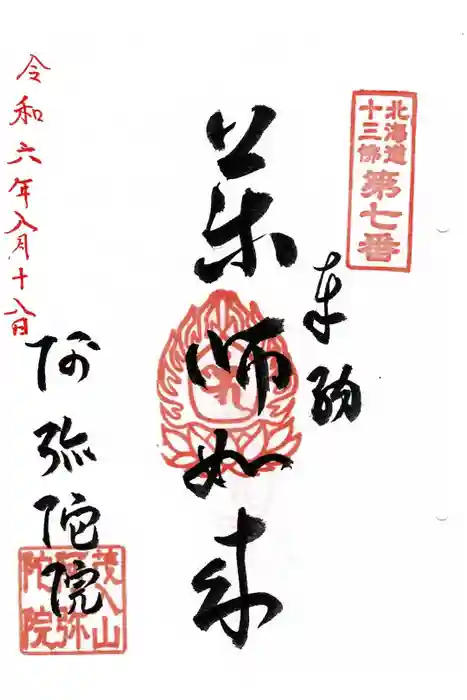 北海道
十三佛
第七番
奉納
薬師如来
令和六年八月十八日
阿弥陀院
茂入山
阿弥
陀院